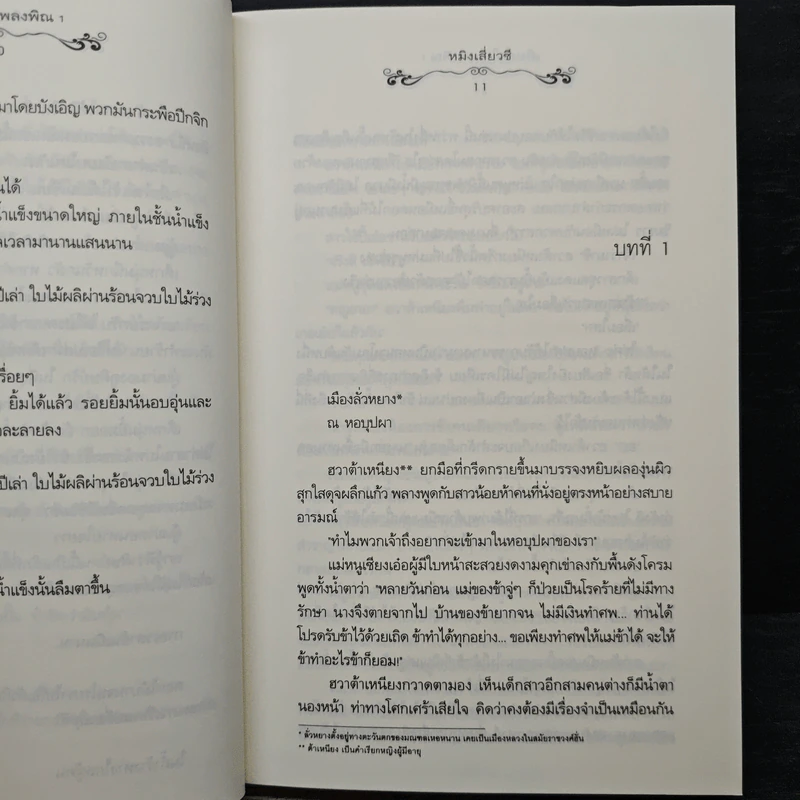 พลงพิณ 1
มาโดยบังเอิญ พวกมันกระพือปีกจิก
นได้
น้ำแข็งขนาดใหญ่ ภายในชั้นน้ำแข็ง
ลเวลามานานแสนนาน
ปีเล่า ใบไม้ผลิผ่านร้อนจวบใบไม้ร่วง
รื่อยๆ
ยิ้มได้แล้ว รอยยิ้มนั้นอบอุ่นและ
ละลายลง
ปีเล่า ใบไม้ผลิผ่านร้อนจวบใบไม้ร่วง
น้ำแข็งนั้นลืมตาขึ้น
หมิงเสี่ยวซี
11
บทที่ 1
เมืองลั่วหยาง*
ณ หอบุปผา
ฮวาต้าเหนียง** ยกมือที่กรีดกรายขึ้นมาบรรจงหยิบผลองุ่นผิว
สุกใสดุจผลึกแก้ว พลางพูดกับสาวน้อยห้าคนที่นั่งอยู่ตรงหน้าอย่างสบาย
อารมณ์
"ทำไมพวกเจ้าถึงอยากจะเข้ามาในหอบุปผาของเรา"
แม่หนูเซียงเอ๋อผู้มีใบหน้าสะสวยงดงามคุกเข่าลงกับพื้นดังโครม
พูดทั้งน้ำตาว่า "หลายวันก่อน แม่ของข้าจู่ๆ ก็ป่วยเป็นโรคร้ายที่ไม่มีทาง
รักษา นางจึงตายจากไป บ้านของข้ายากจน ไม่มีเงินทำศพ... ท่านได้
โปรดรับข้าไว้ด้วยเถิด ข้าทำได้ทุกอย่าง... ขอเพียงทำศพให้แม่ข้าได้ จะให้
ข้าทำอะไรข้าก็ยอม!"
ฮวาต้าเหนียงกวาดตามอง เห็นเด็กสาวอีกสามคนต่างก็มีน้ำตา
นองหน้า ท่าทางโศกเศร้าเสียใจ คิดว่าคงต้องมีเรื่องจำเป็นเหมือนกัน
* ลั่วหยางตั้งอยู่ทางตะวันตกของมณฑลเหอหนาน เคยเป็นเมืองหลวงในสมัยราชวงศ์ฮั่น
** ต้าเหนียง เป็นคำเรียกหญิงผู้มีอายุ